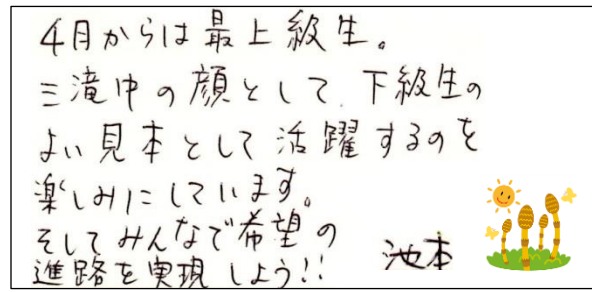 4月からは最上級生。
三滝中の顔として、下級生の
よい見本として活躍するのを
楽しみにしています。
そしてみんなで希望の
進路を実現しよう!!
池本